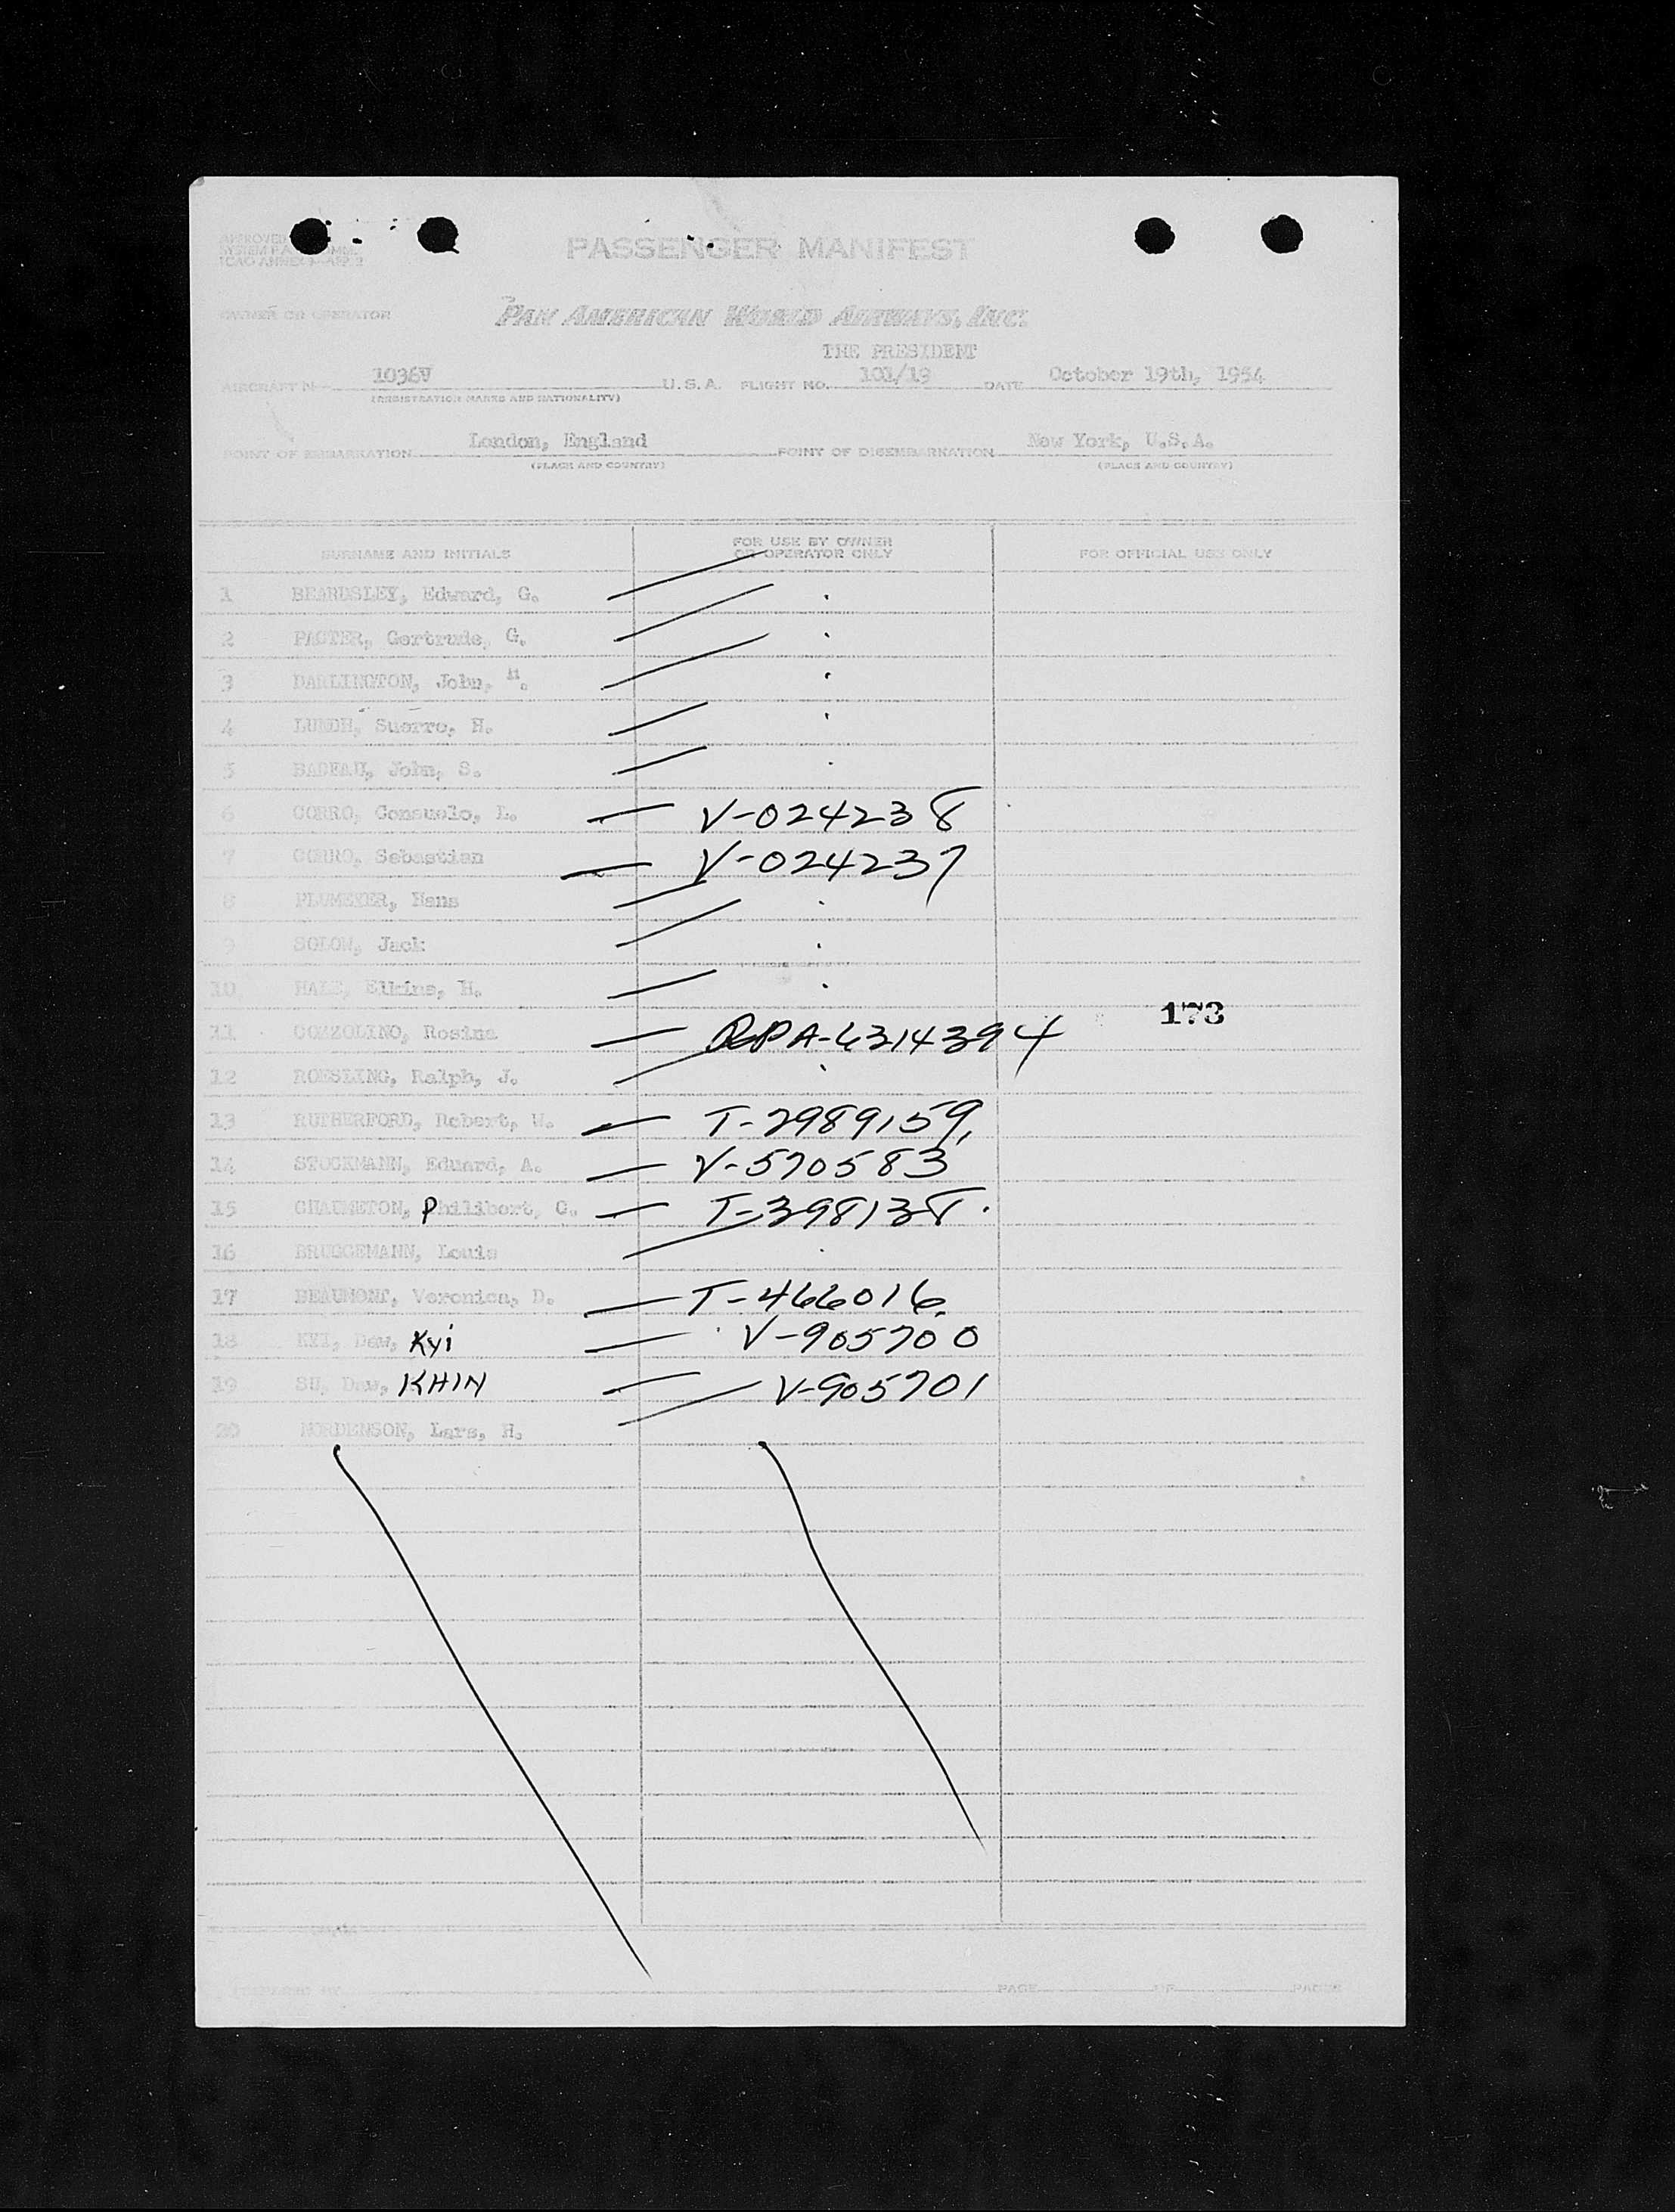 APPROVED
PASSENGER MANIFEST
OWNER OR OPERATOR
PAN AMERICAN WORLD AIRWAYS, INC.
THE PRESIDENT
AIRCRAFT No 1036V U.S.A. FLIGHT NO. 101/19 DATE October 19th, 1954
(REGISTRATION MARKS AND NATIONALITY)
POINT OF EMBARKATION London, England POINT OF DISEMBARKATION New York, U.S.A.
(PLACE AND COUNTRY) (PLACE AND COUNTRY)
SURNAME AND INITIALS FOR USE BY OWNER OR OPERATOR ONLY FOR OFFICIAL USE ONLY
1 BEARDSLEY, Edward, G.
2 Gertrude, G.
3 DARLINGTON, John, H.
4 LUNDH, Suerre, H.
5 BADEAU, John, S.
6 CORRO, Consuelo, L. V-024238
7 CORRO, Sebastian V-024237
8 PLUMEYER, Hans
9 SOLOW, Jack
10 HALE, Elkins, H.
173
11 COZZOLINO, Rosina A-6314394
12 ROESLING, Ralph, J.
13 RUTHERFORD, Robert, W. T-2989159
14 STOCKMANN, Eduard, A. V-570583
15 CHAUMETON, Philibert, G. T-398138
16 BRUGGEMANN, Louis
17 BEAUMONT, Veronica, D. T-466016
18 KYI, Daw, Kyi V-905700
19 SU, Daw, KHIN V-905701
20 NORDENSON, Lars, H.
PAGE OF PAGES